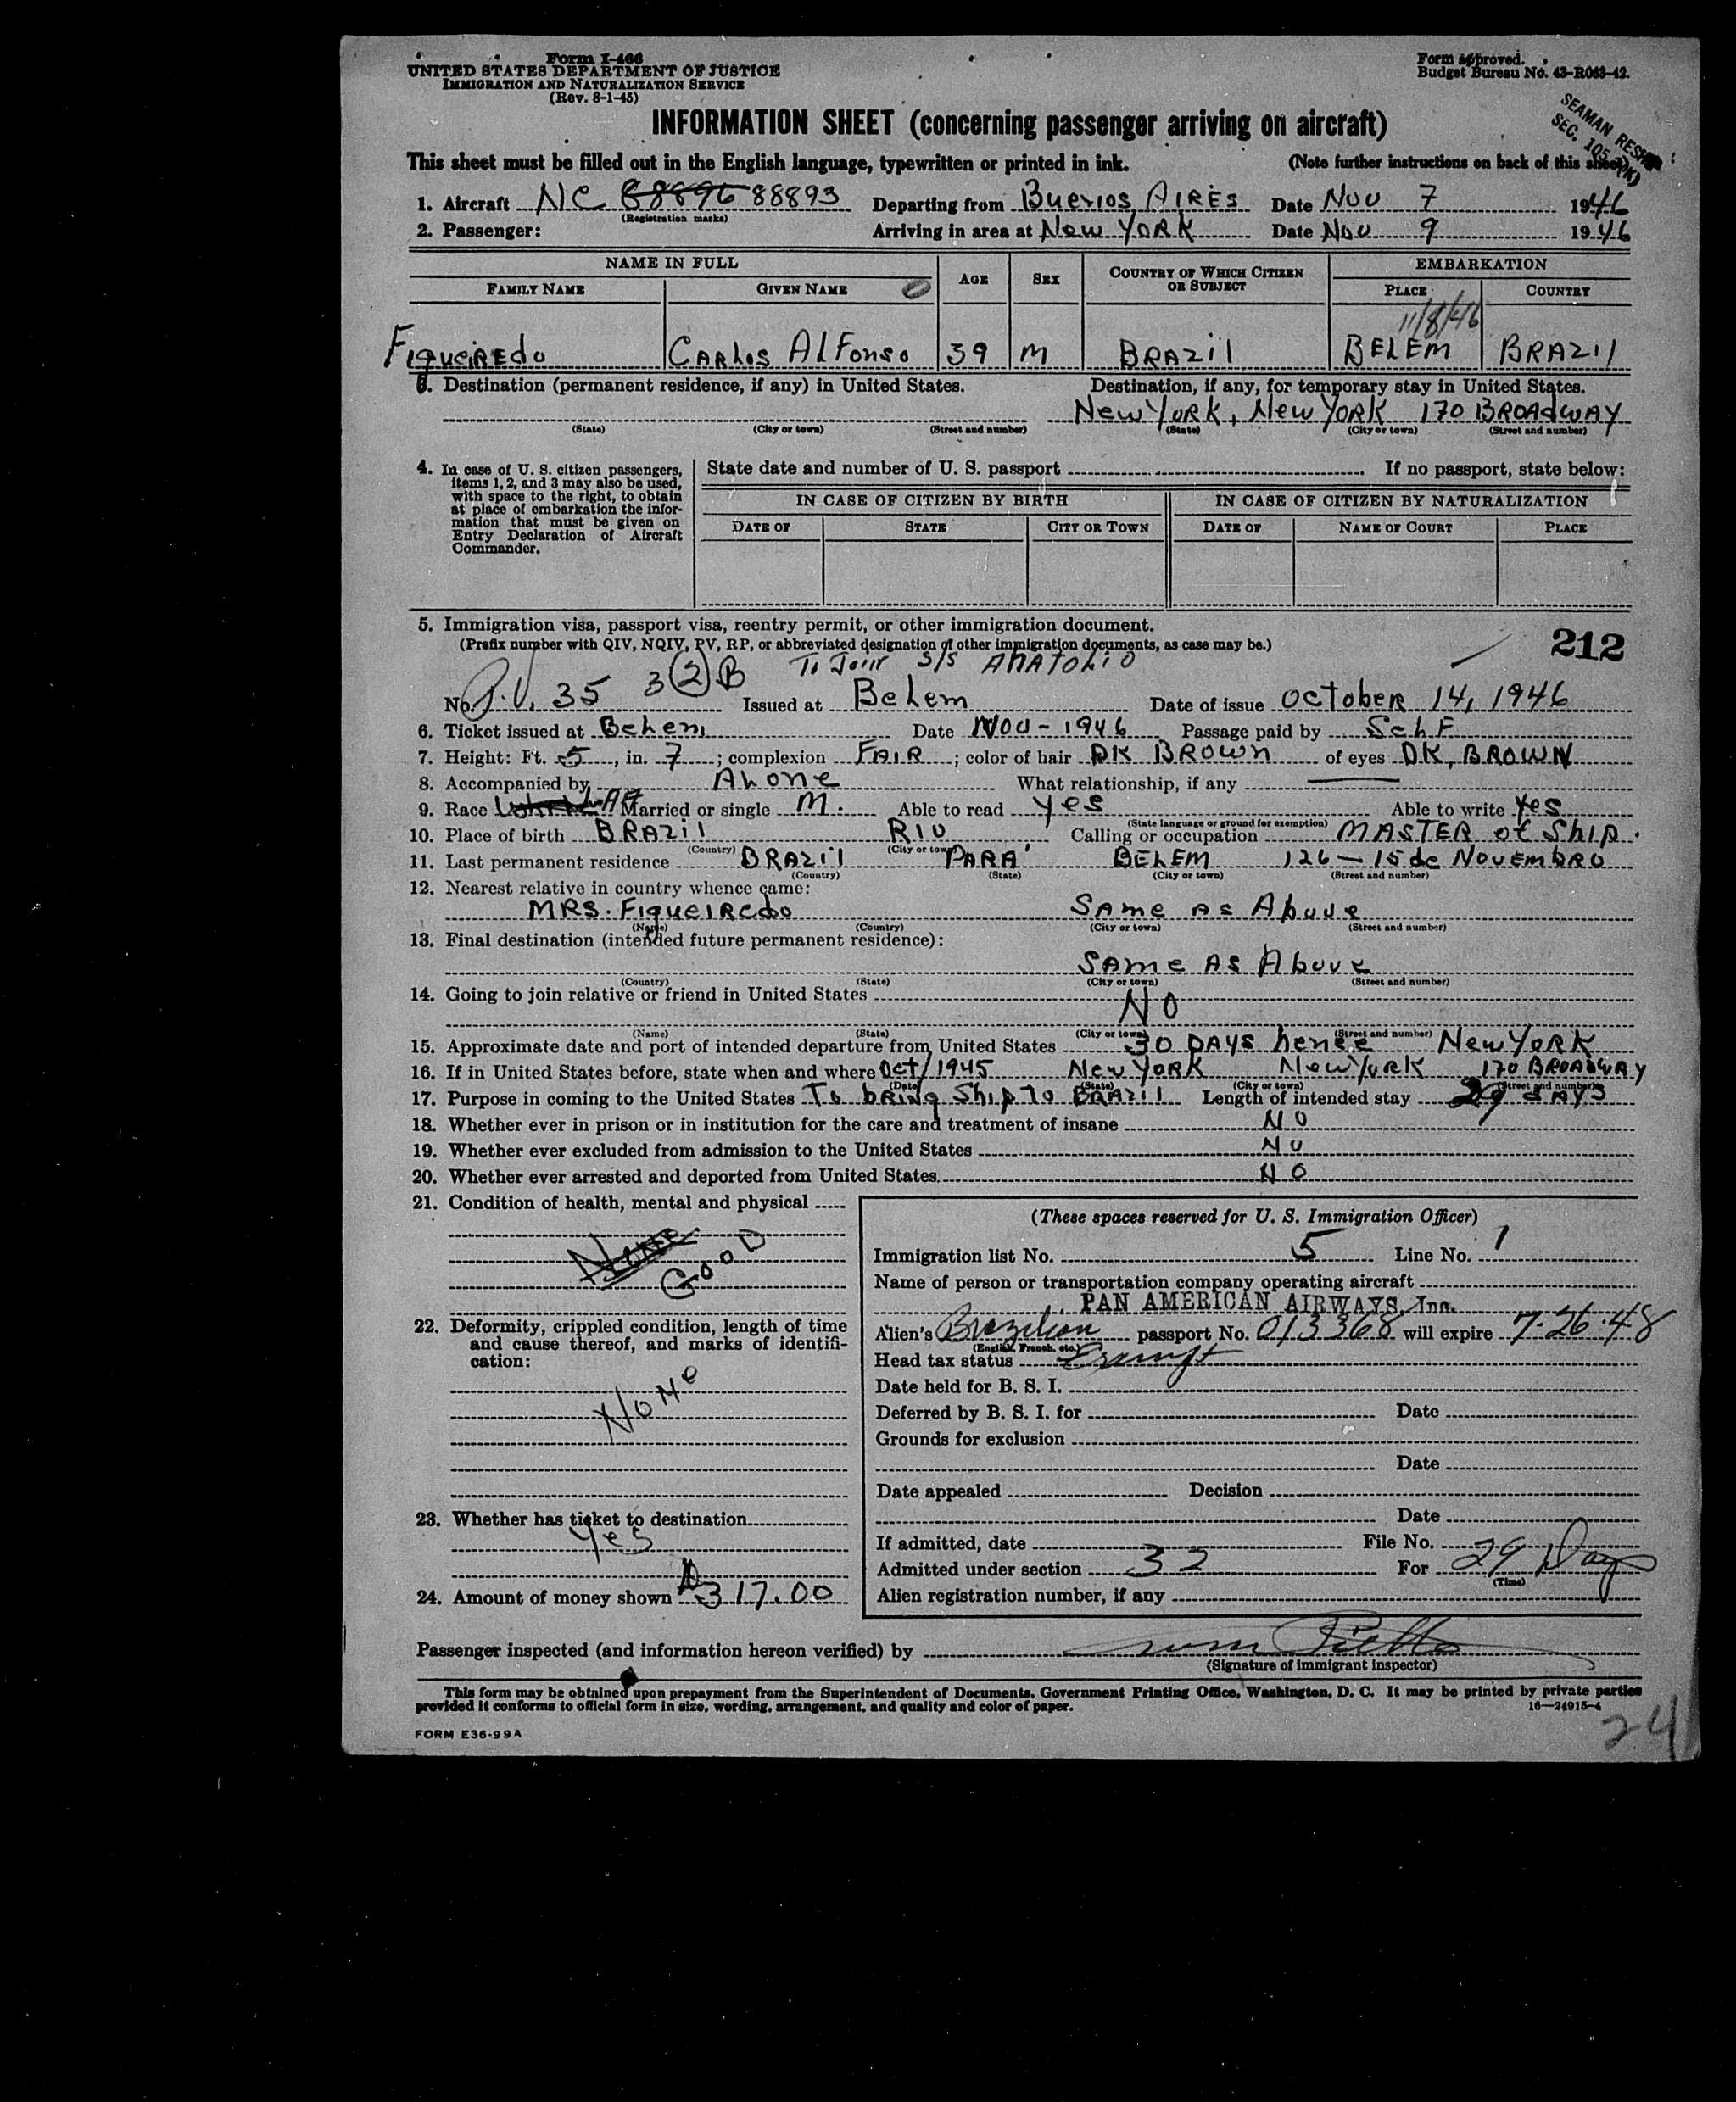 Form I-466
UNITED STATES DEPARTMENT OF JUSTICE
IMMIGRATION AND NATURALIZATION SERVICE
(Rev. 8-1-45)
Form approved.
Budget Bureau No. 43-R063-42.
INFORMATION SHEET (concerning passenger arriving on aircraft)
SEAMAN
SEC. 105
This sheet must be filled out in the English language, typewritten or printed in ink. (Note further instructions on back of this sheet)
1. Aircraft NC 88896 88893 Departing from Buenos AIRES Date Nov 7 1946
(Registration marks)
2. Passenger: Arriving in area at New YORK Date Nov 9 1946
NAME IN FULL AGE SEX COUNTRY OF WHICH CITIZEN OR SUBJECT EMBARKATION
FAMILY NAME GIVEN NAME PLACE COUNTRY
11/8/46
FIGUEIREdo CARLos ALFonso 39 M BRAZil BELEM BRAZil
3. Destination (permanent residence, if any) in United States. Destination, if any, for temporary stay in United States.
New YORK, New YORK 170 BROADWAY
(State) (City or town) (Street and number) (State) (City or town) (Street and number)
4. In case of U. S. citizen passengers, items 1, 2, and 3 may also be used, with space to the right, to obtain at place of embarkation the information that must be given on Entry Declaration of Aircraft Commander.
State date and number of U. S. passport If no passport, state below:
IN CASE OF CITIZEN BY BIRTH IN CASE OF CITIZEN BY NATURALIZATION
DATE OF STATE CITY OR TOWN DATE OF NAME OF COURT PLACE
5. Immigration visa, passport visa, reentry permit, or other immigration document.
(Prefix number with QIV, NQIV, PV, RP, or abbreviated designation of other immigration documents, as case may be.)
212
3(2)B To Join S/S ANATOLIO
No. P.V. 35 Issued at BeLem Date of issue OctobER 14, 1946
6. Ticket issued at BeLem Date Nov - 1946 Passage paid by SeLF
7. Height: Ft. 5, in. 7; complexion FAIR; color of hair DK BROWN of eyes DK. BROWN
8. Accompanied by ALone What relationship, if any
9. Race Married or single M. Able to read yes Able to write yes
(State language or ground for exemption)
10. Place of birth BRAZil RIO Calling or occupation MASTER of Ship.
(Country) (City or town)
11. Last permanent residence BRAZil PARA' BELEM 126 - 15 de NOVEMBRO
(Country) (State) (City or town) (Street and number)
12. Nearest relative in country whence came:
MRS. FIGUEIREdo SAme AS Above
(Name) (Country) (City or town) (Street and number)
13. Final destination (intended future permanent residence):
SAme AS Above
(Country) (State) (City or town) (Street and number)
14. Going to join relative or friend in United States
NO
(Name) (State) (City or town) (Street and number)
15. Approximate date and port of intended departure from United States 30 DAYS hence New YORK
16. If in United States before, state when and where Oct/1945 New YORK New YORK 170 BROADWAY
(Date) (State) (City or town) (Street and number)
17. Purpose in coming to the United States To bRing Ship To BRAZil Length of intended stay 29 dAYS
18. Whether ever in prison or in institution for the care and treatment of insane NO
19. Whether ever excluded from admission to the United States NO
20. Whether ever arrested and deported from United States. NO
21. Condition of health, mental and physical
None
GooD
22. Deformity, crippled condition, length of time and cause thereof, and marks of identification:
None
23. Whether has ticket to destination
yes
24. Amount of money shown $317.00
(These spaces reserved for U. S. Immigration Officer)
Immigration list No. 5 Line No. 1
Name of person or transportation company operating aircraft
PAN AMERICAN AIRWAYS, Inc.
Alien's Brazilian passport No. 013368 will expire 7-26-48
(English, French, etc.)
Head tax status Exempt
Date held for B. S. I.
Deferred by B. S. I. for Date
Grounds for exclusion
Date
Date appealed Decision
Date
If admitted, date File No.
Admitted under section 32 For 29 Days
(Time)
Alien registration number, if any
Passenger inspected (and information hereon verified) by
(Signature of immigrant inspector)
This form may be obtained upon prepayment from the Superintendent of Documents, Government Printing Office, Washington, D. C. It may be printed by private parties
provided it conforms to official form in size, wording, arrangement, and quality and color of paper. 16—24915-4
FORM E36-99A
24